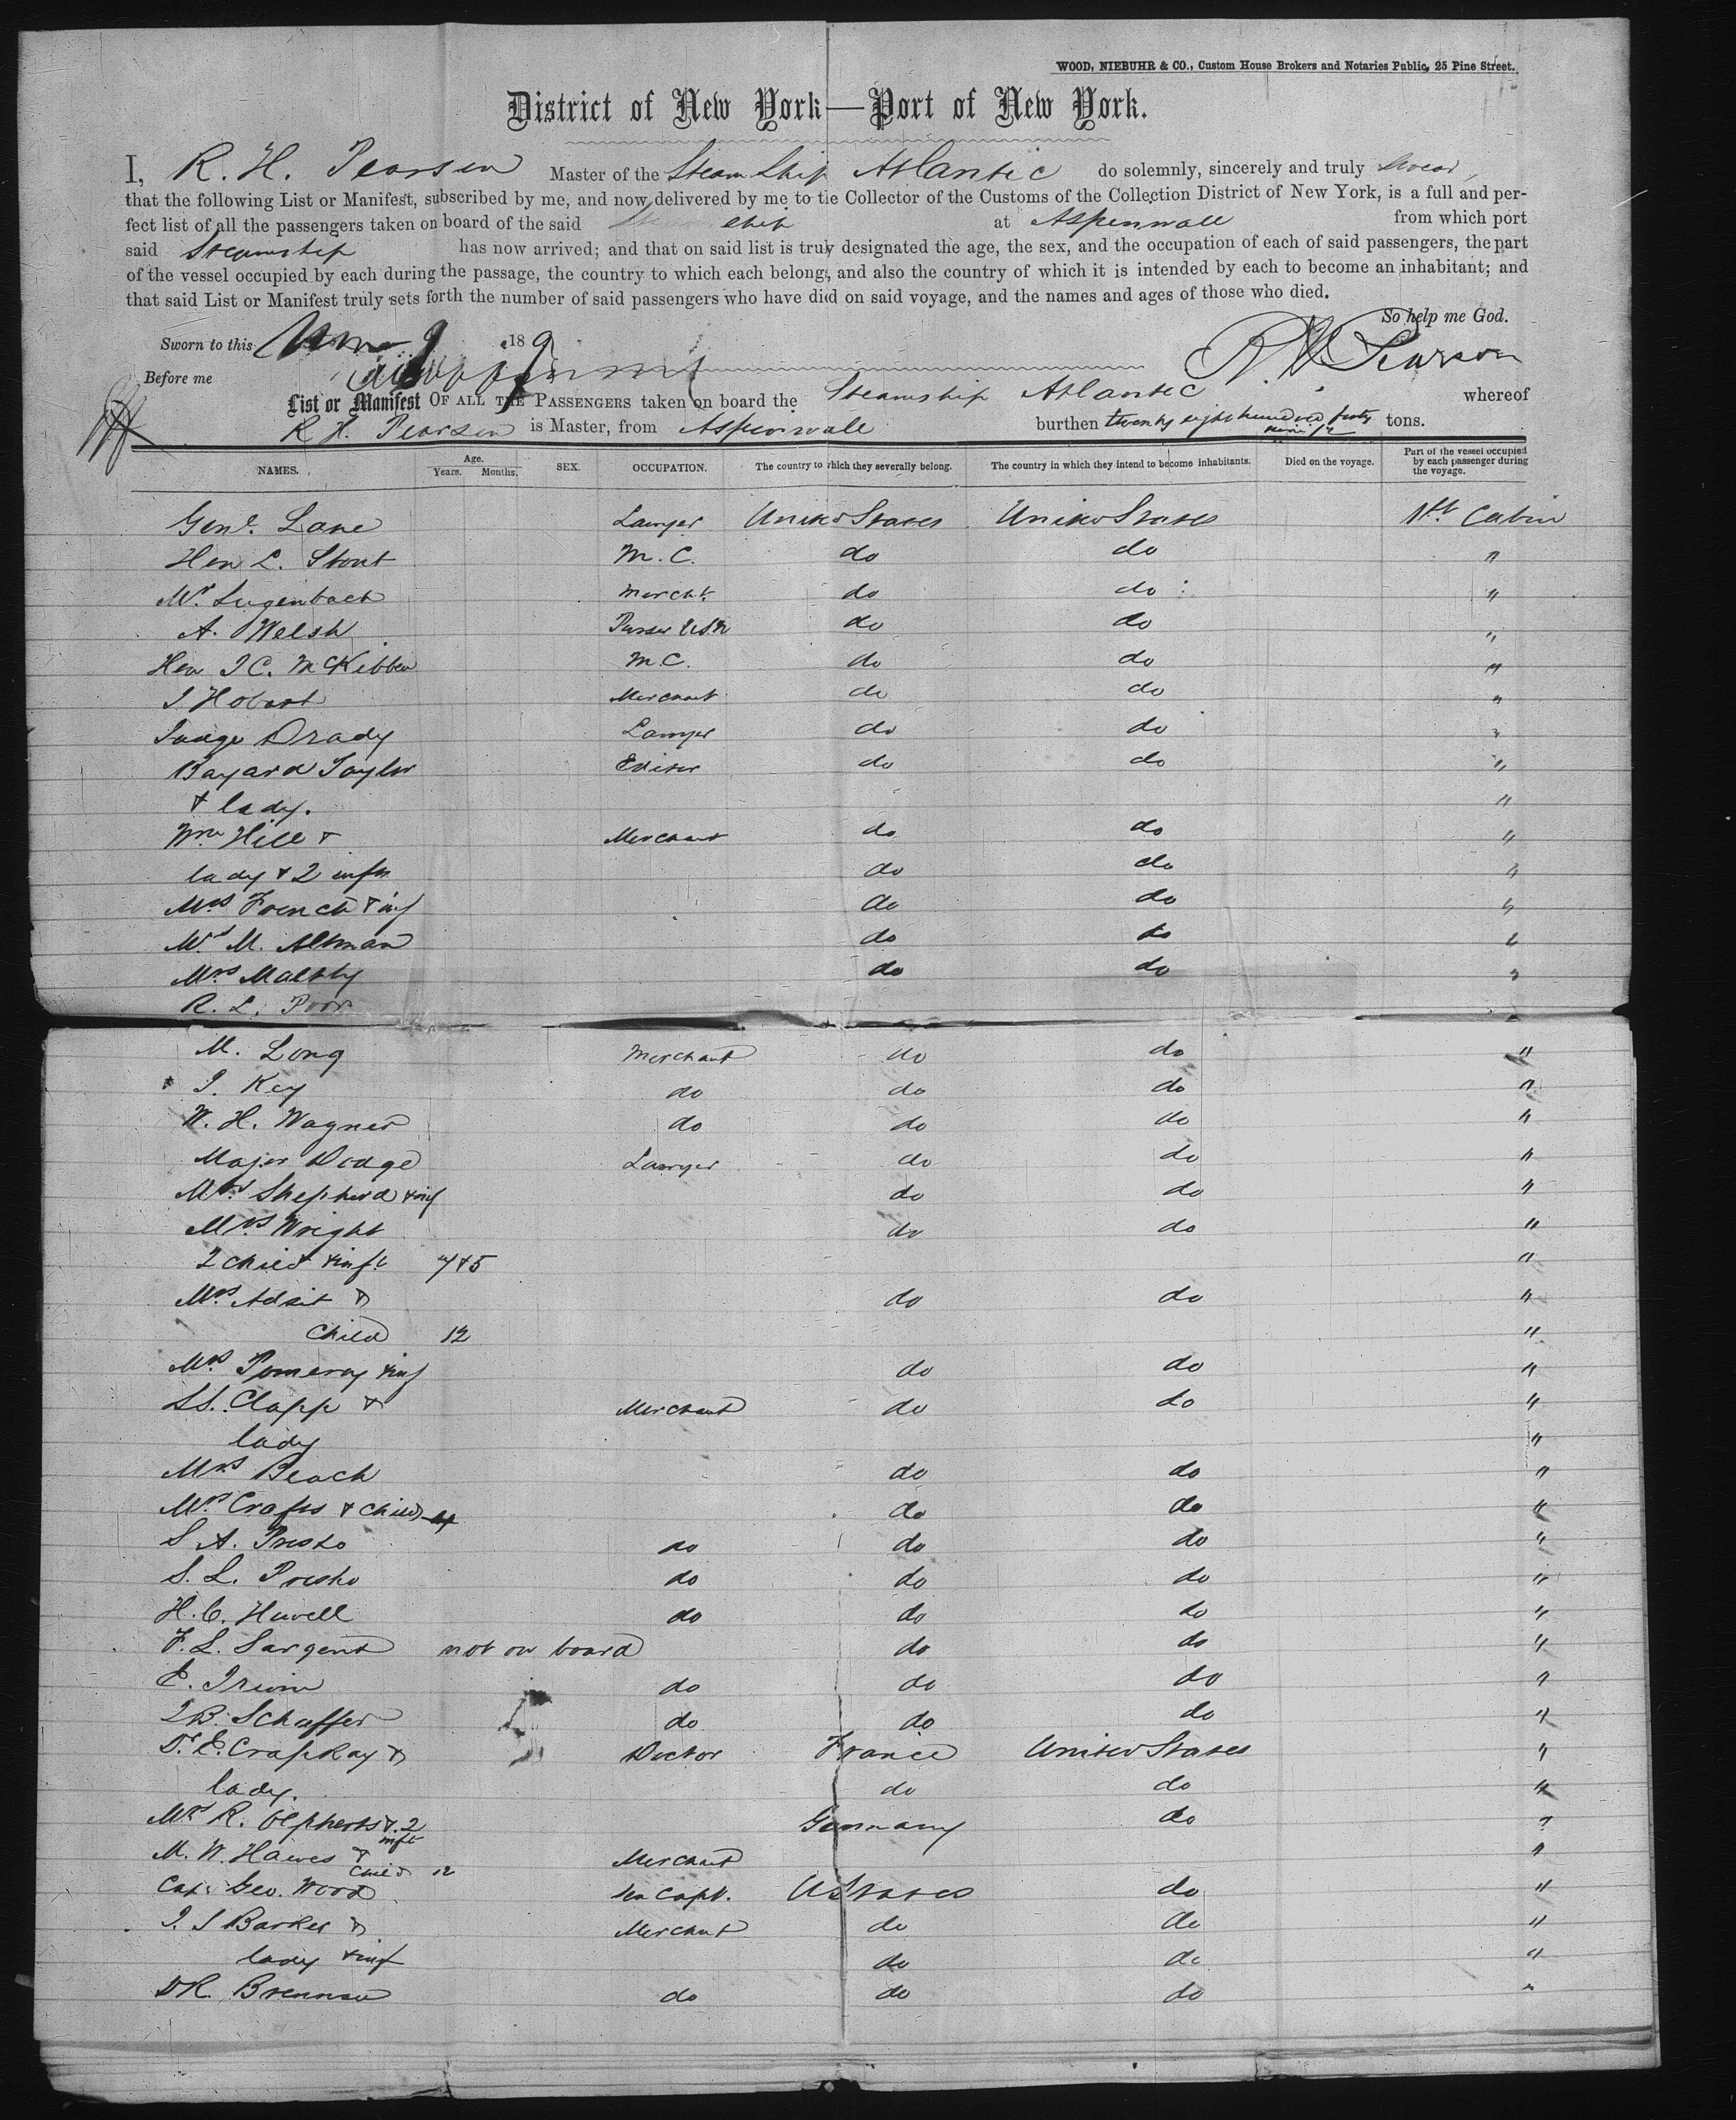 WOOD, NIEBUHR & CO., Custom House Brokers and Notaries Public, 25 Pine Street.
District of New York—Port of New York.
I, R. H. Pearson Master of the Steam Ship Atlantic do solemnly, sincerely and truly swear,
that the following List or Manifest, subscribed by me, and now delivered by me to the Collector of the Customs of the Collection District of New York, is a full and per-
fect list of all the passengers taken on board of the said Steam ship at Aspinwall from which port
said Steamship has now arrived; and that on said list is truly designated the age, the sex, and the occupation of each of said passengers, the part
of the vessel occupied by each during the passage, the country to which each belongs, and also the country of which it is intended by each to become an inhabitant; and
that said List or Manifest truly sets forth the number of said passengers who have died on said voyage, and the names and ages of those who died.
So help me God.
Sworn to this 9 189 R. H. Pearson
Before me
List or Manifest OF ALL THE PASSENGERS taken on board the Steamship Atlantic whereof
R H. Pearson is Master, from Aspinwall burthen twenty eight hundred forty tons.
NAMES. Age. Years. Months. SEX. OCCUPATION. The country to which they severally belong. The country in which they intend to become inhabitants. Died on the voyage. Part of the vessel occupied by each passenger during the voyage.
Genl. Lane Lawyer United States United States 1st Cabin
Hon L. Stout M. C. do do "
Mr. Lugenbach Mercht. do do "
A. Welsh Purser U.S.N do do "
Hon J C. McKibben M. C. do do "
J. Hobart Merchant do do "
Judge Brady Lawyer do do "
Bayard Taylor Editor do do "
& lady. "
Wm Hill & Merchant do do "
lady & 2 infts do do "
Mrs French & inf do do "
Mrs M. Altman do do "
Mrs Maltby do do "
R. L. Poor
M. Long Merchant do do "
J. Key do do do "
W. H. Wagner do do do "
Major Dodge Lawyer do do "
Mrs Shepherd & inf do do "
Mrs Wright do do "
2 child & inft 7 & 5 "
Mrs Adsit & do do "
child 12 "
Mrs Pomeroy & inf do do "
L S. Clapp & Merchant do do "
lady "
Mrs Beach do do "
Mrs Crafts & child do do "
S A. Presho do do do "
S. L. Presho do do do "
H. C. Huvell do do do "
F. L. Sargent not on board do do "
E. Irwin do do do "
J B. Schaffer do do do "
Dr. E. CrapRay & Doctor France United States "
lady. do do "
Mrs R. Olpherts & 2 inft Germany do "
M. W. Hawes & child 12 Merchant "
Cap. Geo. Wood Sea Capt. U States do "
J. S Barker & Merchant do do "
lady & inf do do "
D R. Brennan do do do "